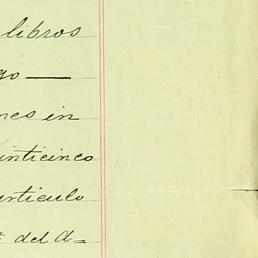 libros
go —
nes in
inticinco
articulo
del d=